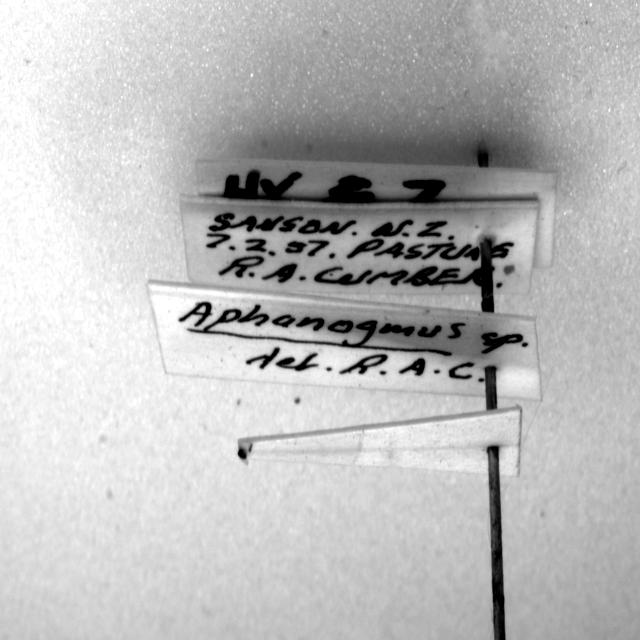 SANSON. N.Z.
7.2.57. PASTURE
R.A. CUMBER.
Aphanogmus sp.
det. P.A.C.